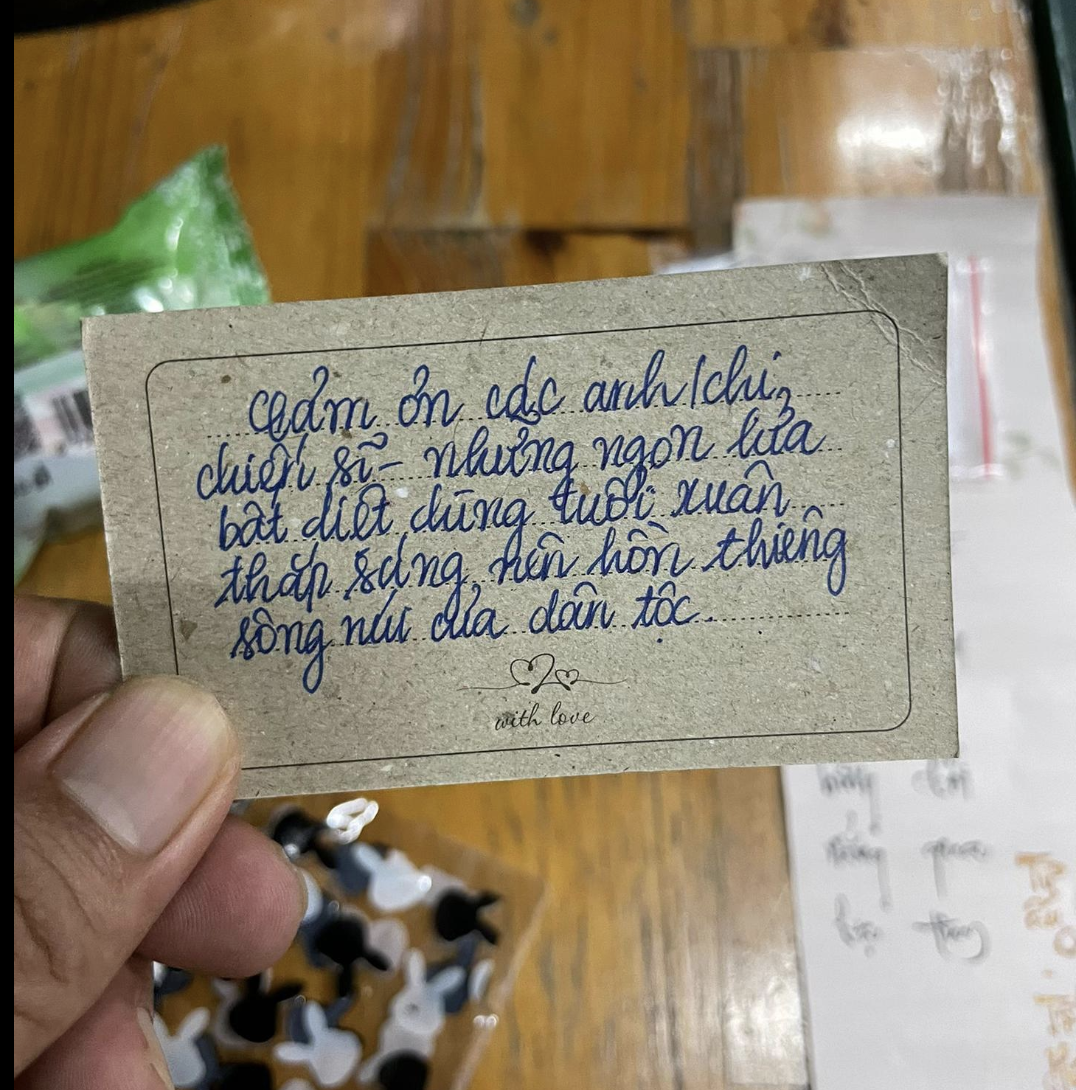 Cảm ơn các anh/chị,
chiến sĩ - những ngọn lửa
bất diệt dùng tuổi xuân
thắp sáng nên hồn thiêng
sông núi của dân tộc.
with love